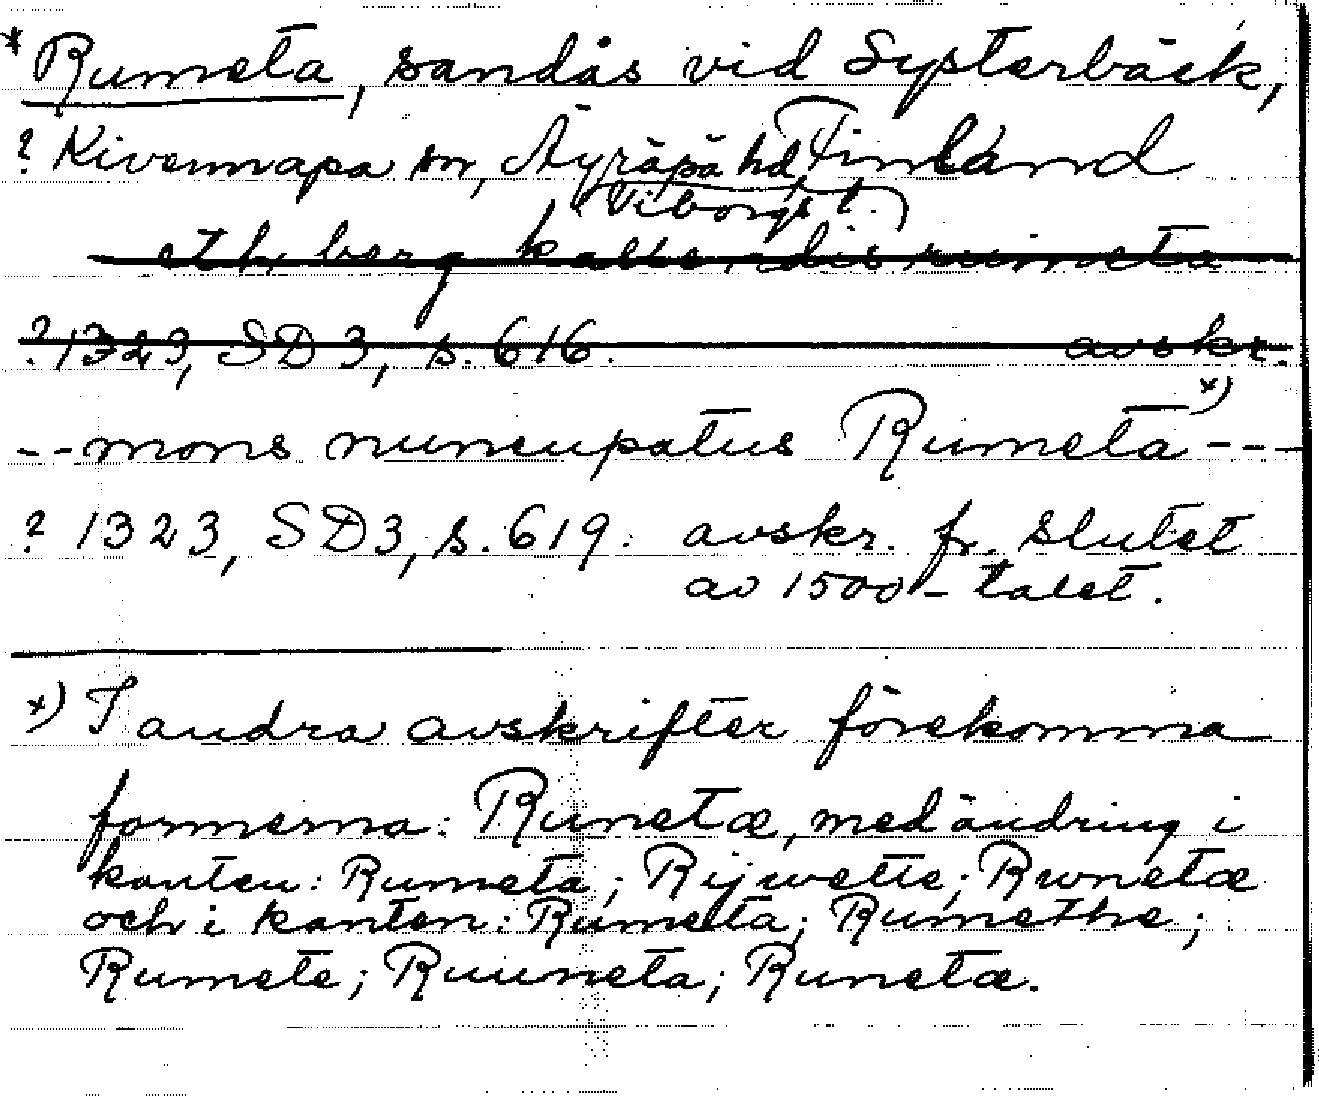 * Rumeta, sandås vid Systerbäck,
? Kivennapa sn, Äyräpä hd, Finland
(Viborgs l.)
et h. berg kalle, dis rumeta
? 1323, SD3, s. 616. avskr.
-- mons nuncupatus Rumeta *) ---
? 1323, SD3, s. 619. avskr. fr. slutet
av 1500-talet.
*) I andra avskrifter förekomma
formerna: Runetæ, med ändring i
kanten: Rumeta; Rijwette; Rwnetæ
och i kanten: Rumetta; Rumethe;
Rumete; Ruuneta; Runetæ.